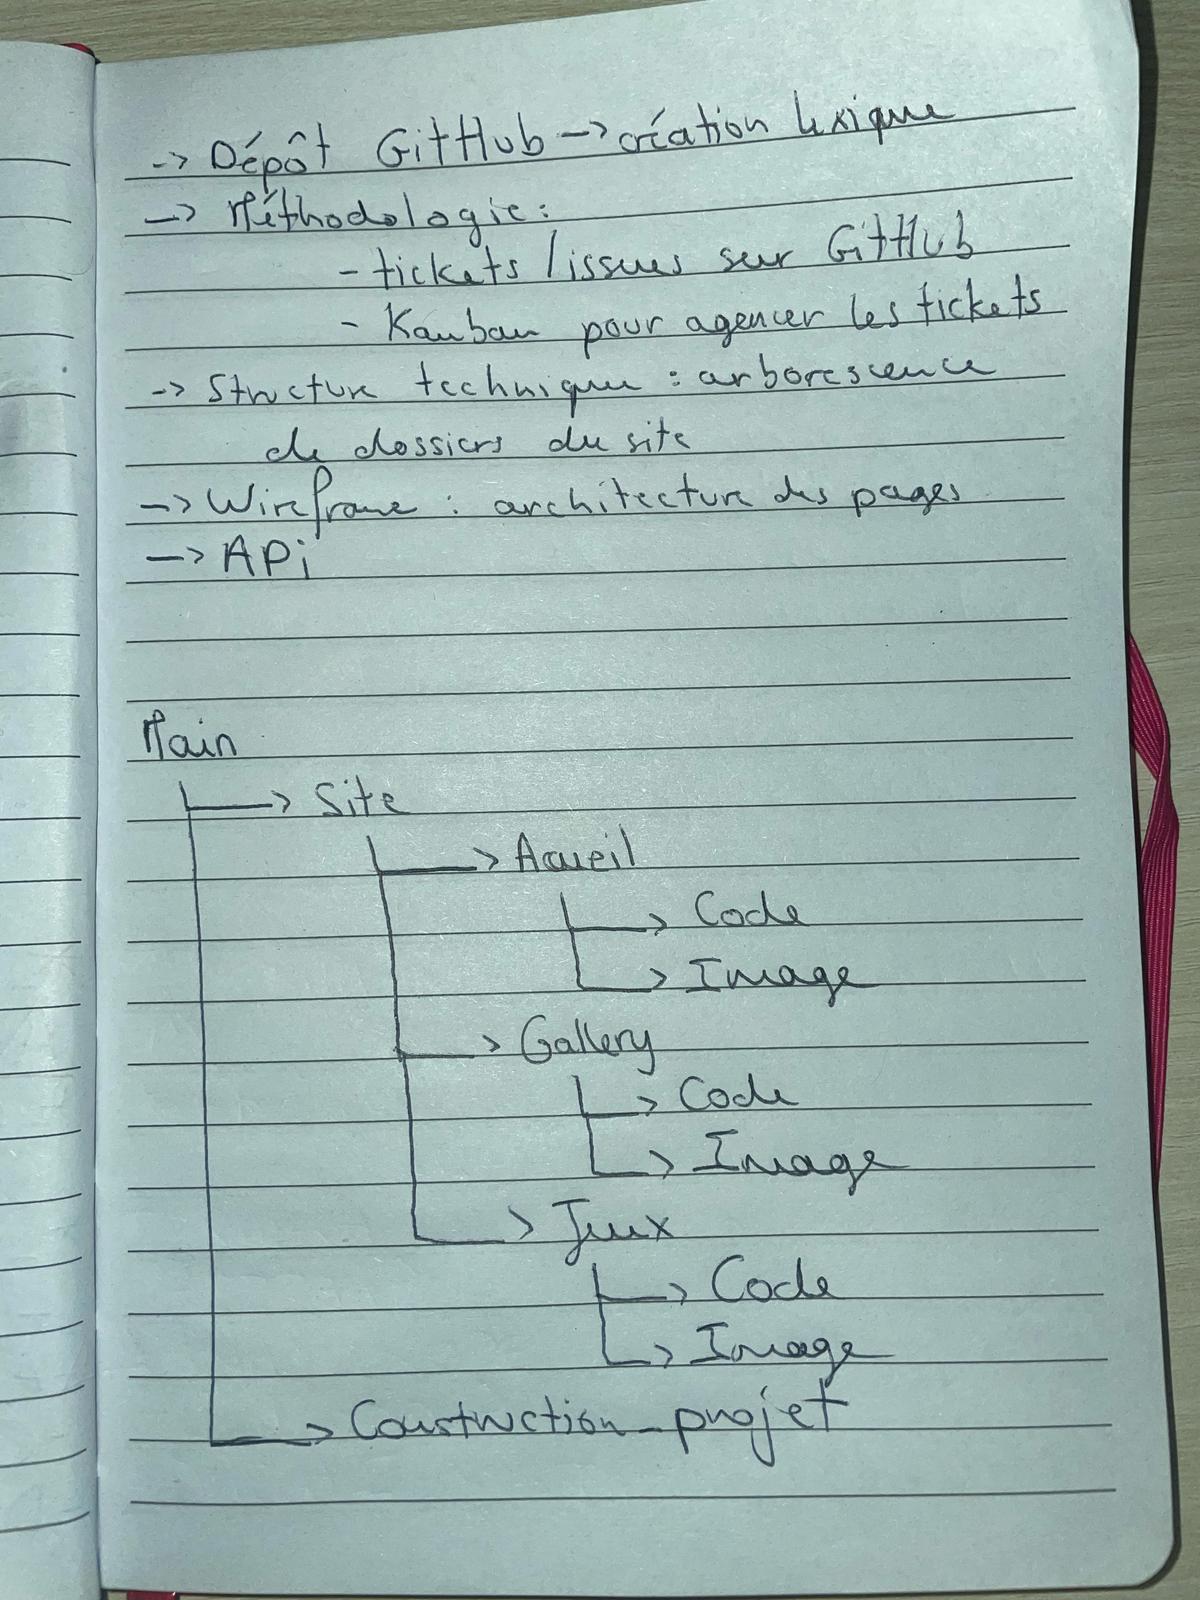 -> Dépôt GitHub -> création lexique
-> Méthodologie :
- tickets / issues sur GitHub
- Kanban pour agencer les tickets
-> Structure technique : arborescence
de dossiers du site
-> Wireframe : architecture des pages
-> APi
Main
-> Site
-> Acueil
-> Code
-> Image
-> Gallery
-> Code
-> Image
-> Jeux
-> Code
-> Image
-> Construction_projet